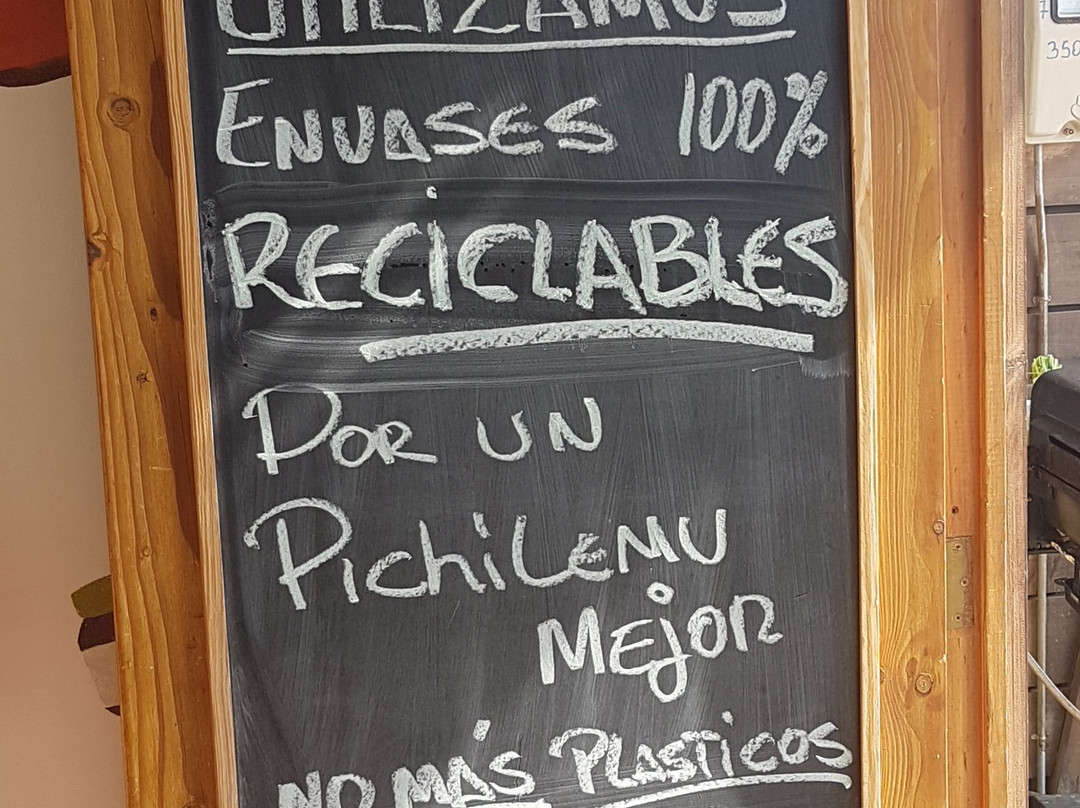 UTILIZAMOS
ENVASES 100%
RECiCLABLES
POR UN
PichiLEMU
MEjOR
NO MÁS PLASTiCOS
350